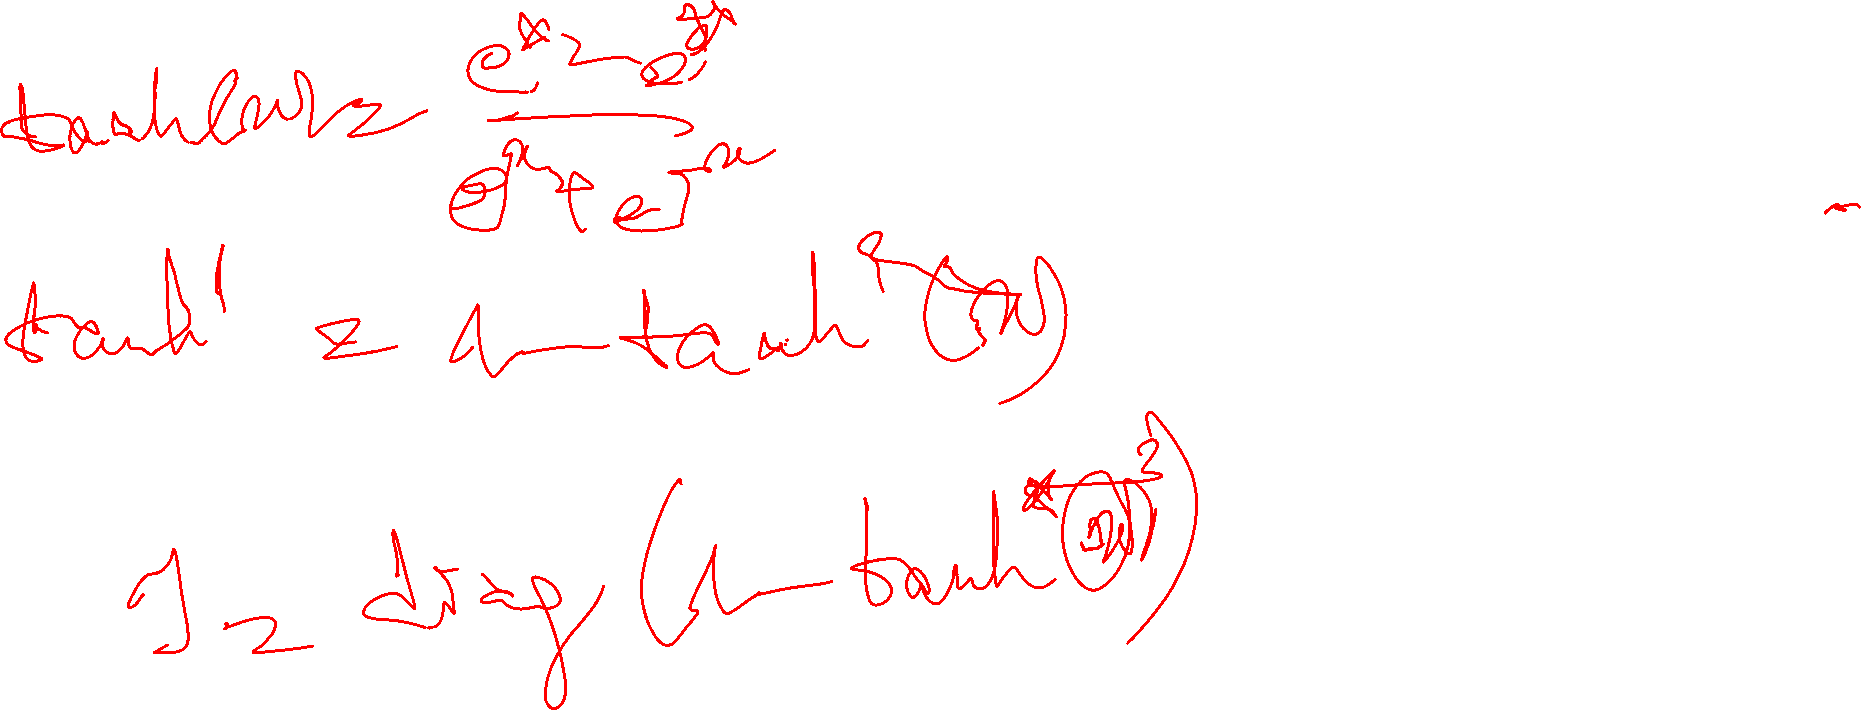 tanh(x) = (e^x - e^-x) / (e^x + e^-x)
tanh' = 1 - tanh²(x)
J = diag(1 - tanh(x)²)